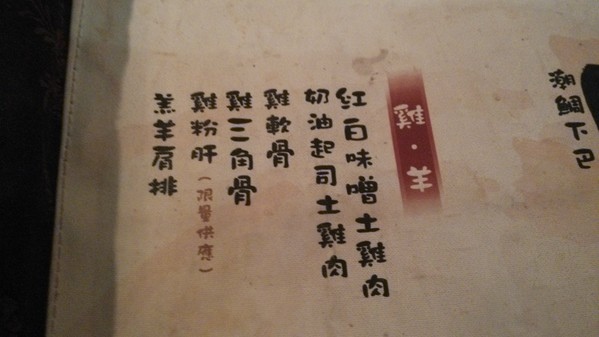 潮鯛下巴
雞・羊
紅白味噌土雞肉
奶油起司土雞肉
雞軟骨
雞三角骨
雞粉肝(限量供應)
羔羊肩排